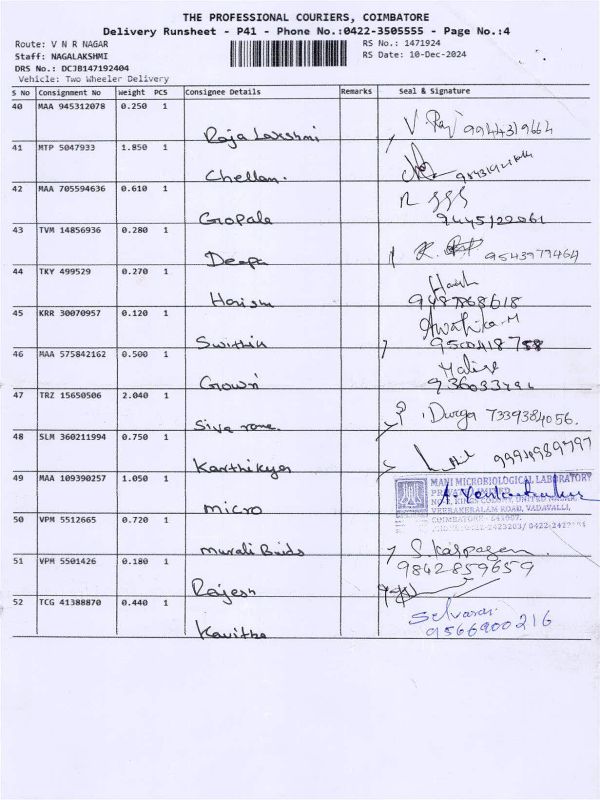 THE PROFESSIONAL COURIERS, COIMBATORE
Delivery Runsheet - P41 - Phone No.:0422-3505555 - Page No.:4
Route: V N R NAGAR
RS No.: 1471924
Staff: NAGALAKSHMI
RS Date: 10-Dec-2024
DRS No.: DCJB147192404
Vehicle: Two Wheeler Delivery
S No Consignment No Weight PCS Consignee Details Remarks Seal & Signature
40 MAA 945312078 0.250 1
Raja Laxshmi
9944319664
41 MTP 5047933 1.850 1
Chellan.
42 MAA 705594636 0.610 1
Gopala
9445122061
43 TVM 14856936 0.280 1
Deepa
9543979464
44 TKY 499529 0.270 1
Harish
9487868618
45 KRR 30070957 0.120 1
Swithin
Awathika.M
46 MAA 575842162 0.500 1
Gowri
47 TRZ 15650506 2.040 1
Siva
Durga 7339384056.
48 SLM 360211994 0.750 1
Karthikyan
49 MAA 109390257 1.050 1
Micro
MANI MICROBIOLOGICAL LABORATORY
VEERAKERALAM ROAD, VADAVALLI,
50 VPM 5512665 0.720 1
Murali
S. Karpagam.
9842859659
51 VPM 5501426 0.180 1
Rajesh
52 TCG 41388870 0.440 1
Kavitha
Selvaraj
9566900216